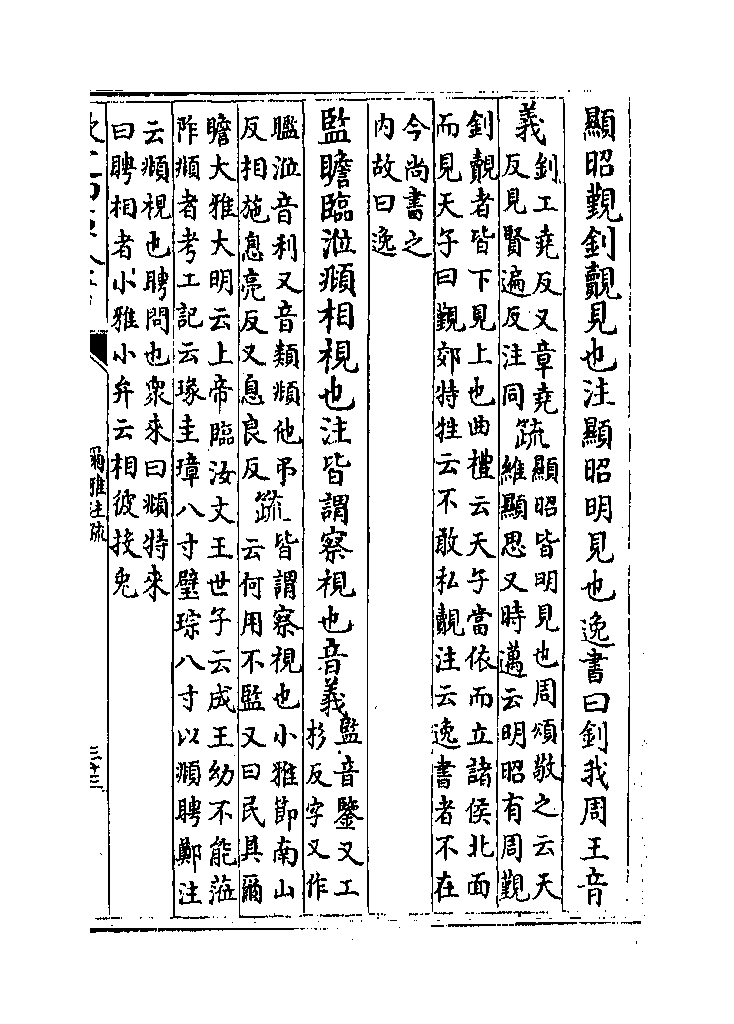 顯昭覲釗覿見也注顯昭明見也逸書曰釗我周王音
義
釗工堯反又章堯
反見賢遍反注同
疏
顯昭皆明見也周頌敬之云天
維顯思又時邁云明昭有周覲
釗覿者皆下見上也曲禮云天子當依而立諸侯北面
而見天子曰覲郊特牲云不敢私覿注云逸書者不在
今尚書之
内故曰逸
監瞻臨涖頫相視也注皆謂察視也音義
監音鑒又工
杉反字又作
涖音利又音類頫他弔
反相施息亮反又息良反
疏
皆謂察視也小雅節南山
云何用不監又曰民具爾
瞻大雅大明云上帝臨汝文王世子云成王幼不能涖
阼頫者考工記云瑑圭璋八寸璧琮八寸以頫聘鄭注
云頫視也聘問也衆來曰頫特來
曰聘相者小雅小弁云相彼投兔
爾雅注疏
三十三